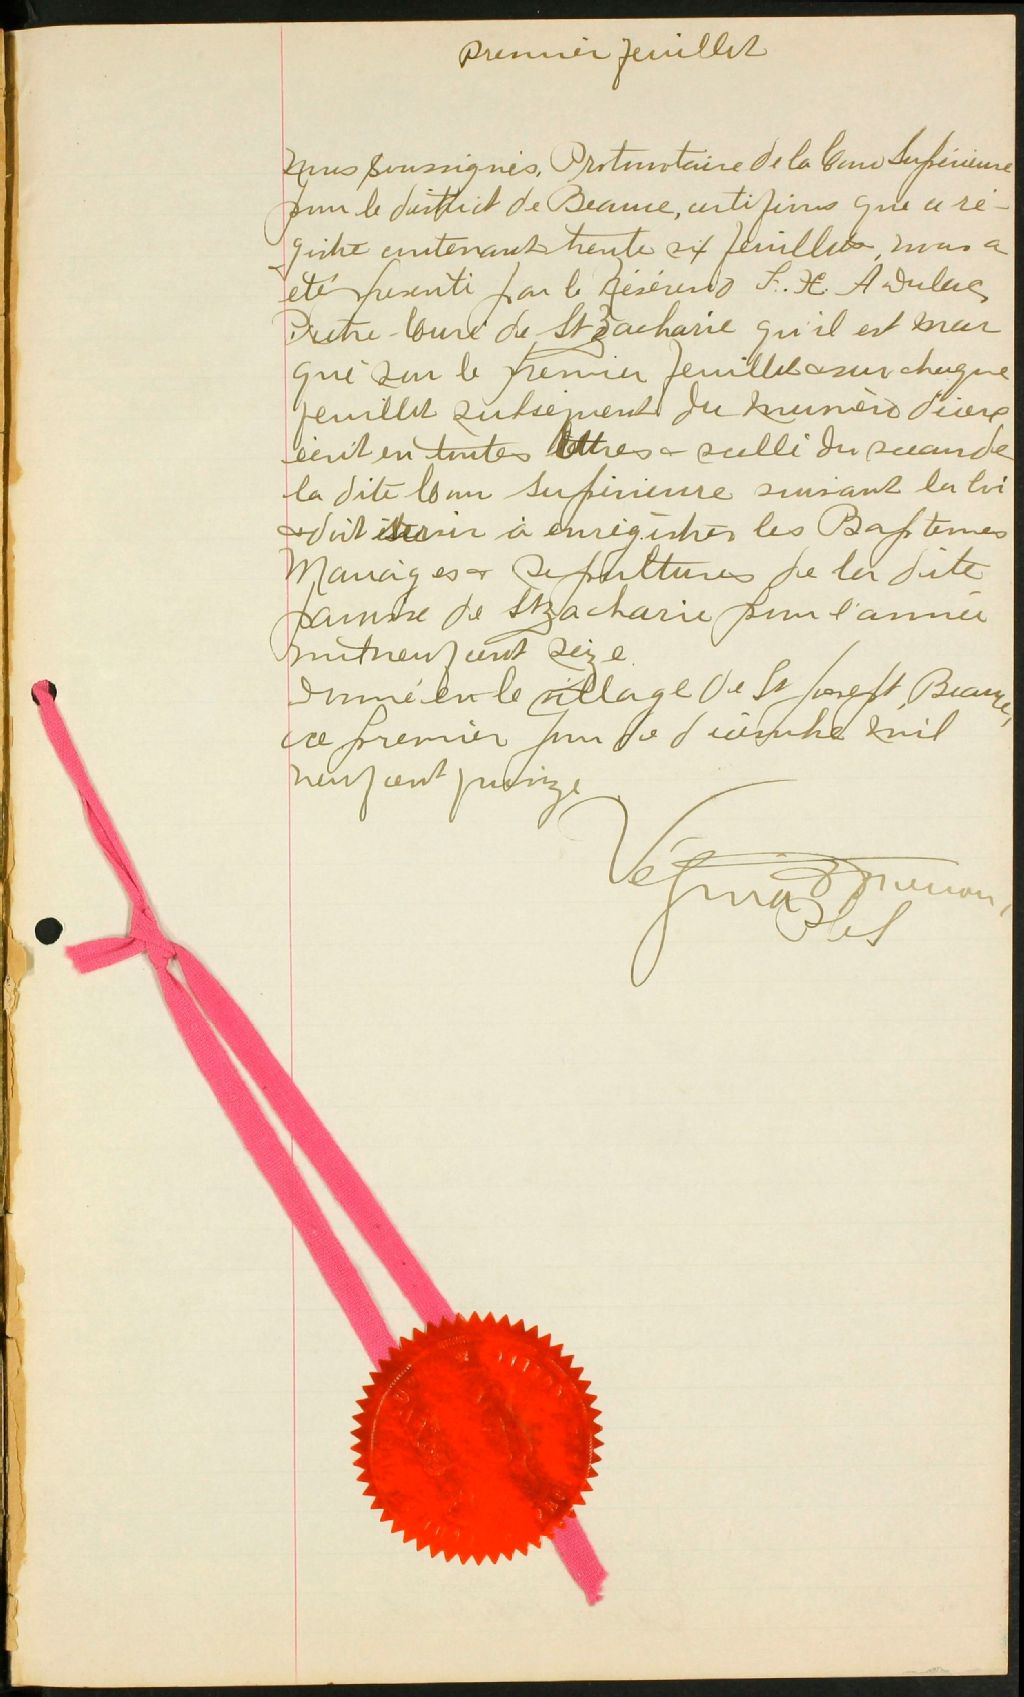 Premier feuillet
Nous soussignés, Protonotaire de la Cour Supérieure
pour le district de Beauce, certifions que ce ré-
gistre contenant trente six feuillets, nous a
été présenté par le Révérend F. X. A Dulac
Prêtre Curé de St Zacharie qu'il est mar
qué sur le premier feuillet & sur chaque
feuillet subséquent du numéro d'iceux
écrit en toutes lettres & scellé du sceau de
la dite Cour Supérieure suivant la loi
& doit servir à enrégistrer les Baptêmes
Mariages & Sépultures de la dite
paroisse de St Zacharie pour l'année
mil neuf cent seize.
Donné en le village de St Joseph, Beauce,
ce premier jour de décembre mil
neuf cent quinze
Vézina
PCS